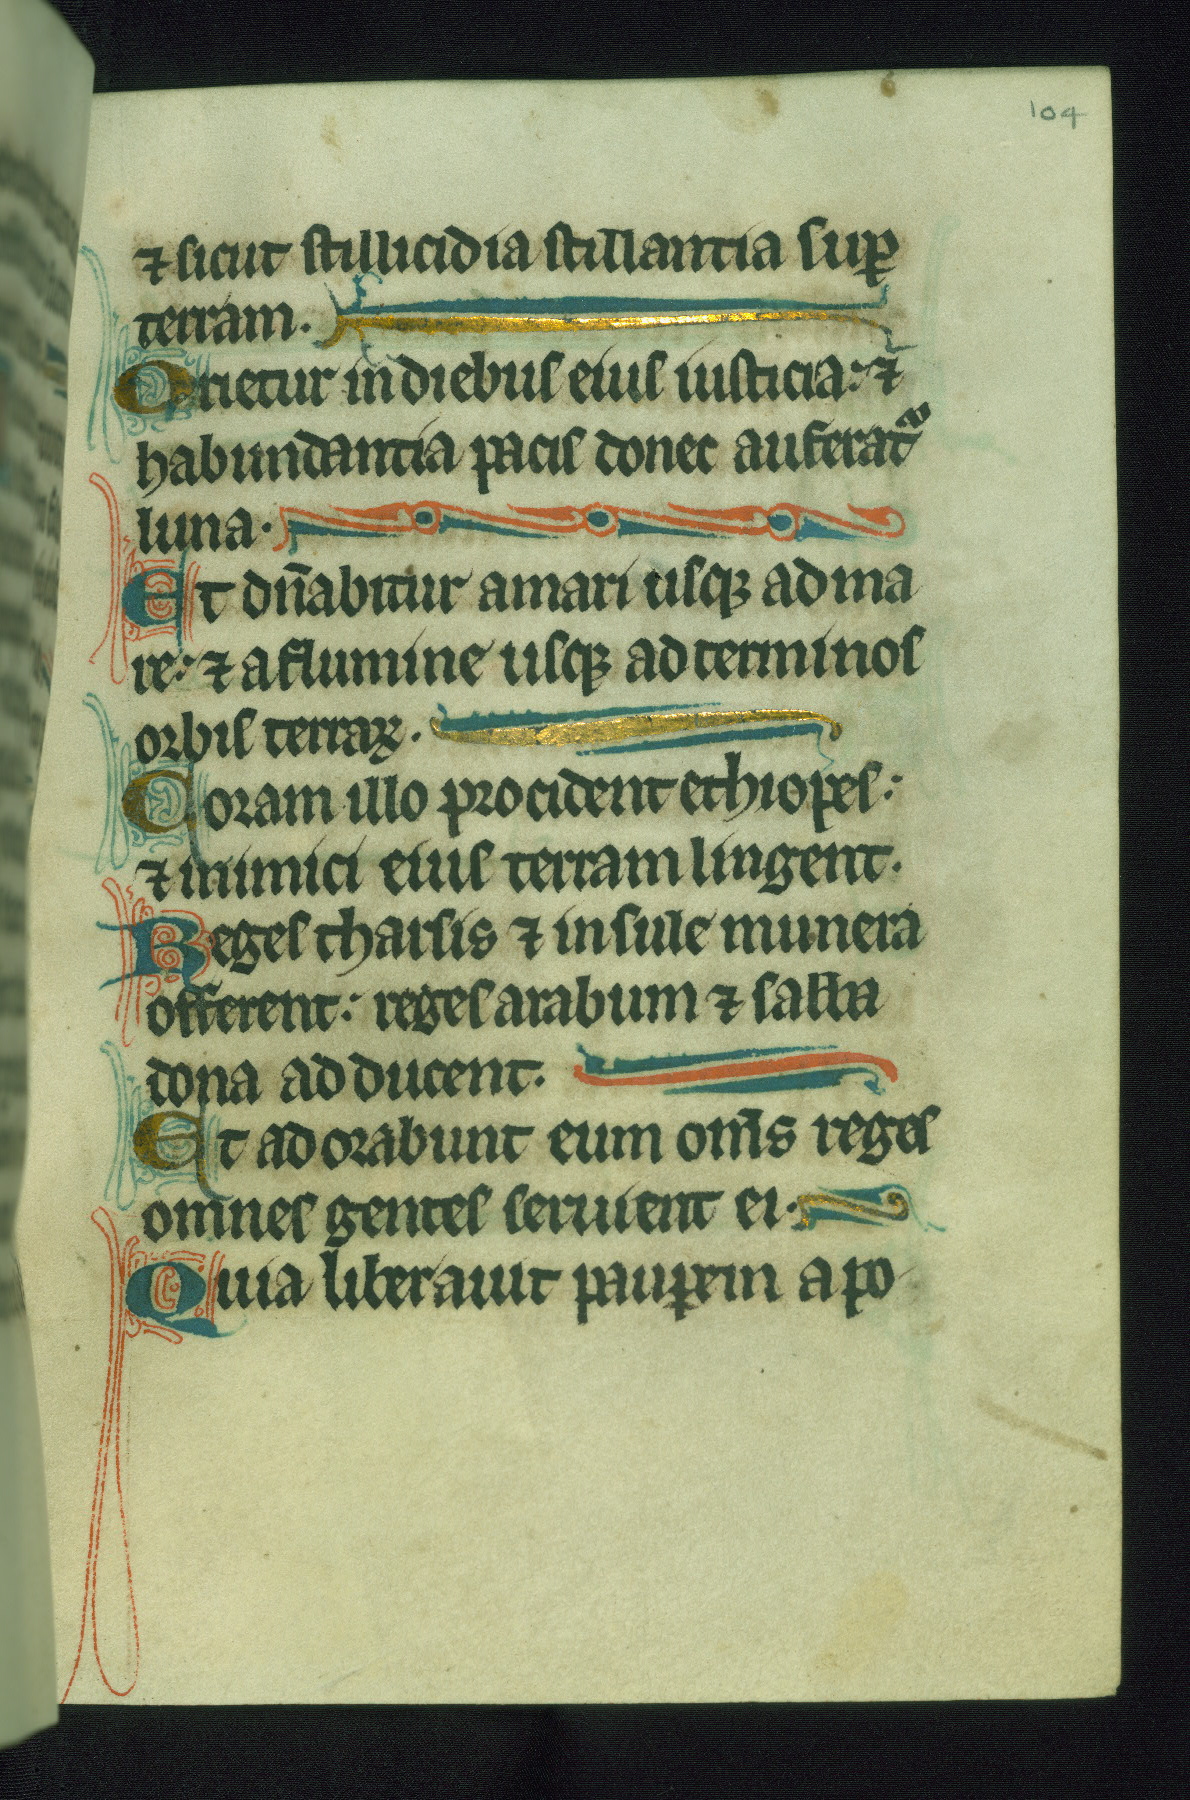 104
⁊ sicut stillicidia stillantia suꝑ
terram.
Orietur in diebus eius iusticia: ⁊
habundantia pacis donec auferat᷑
luna.
Et dn̄abitur amari usqꝫ ad ma
re: ⁊ a flumine usqꝫ ad terminos
orbis terraꝝ.
Coram illo procident ethiopes:
⁊ inimici eius terram lingent.
Reges tharsis ⁊ insule munera
offerent: reges arabum ⁊ saba
dona adducent.
Et adorabunt eum om̄s reges
omnes gentes seruient ei.
Quia liberauit pauꝑem a po